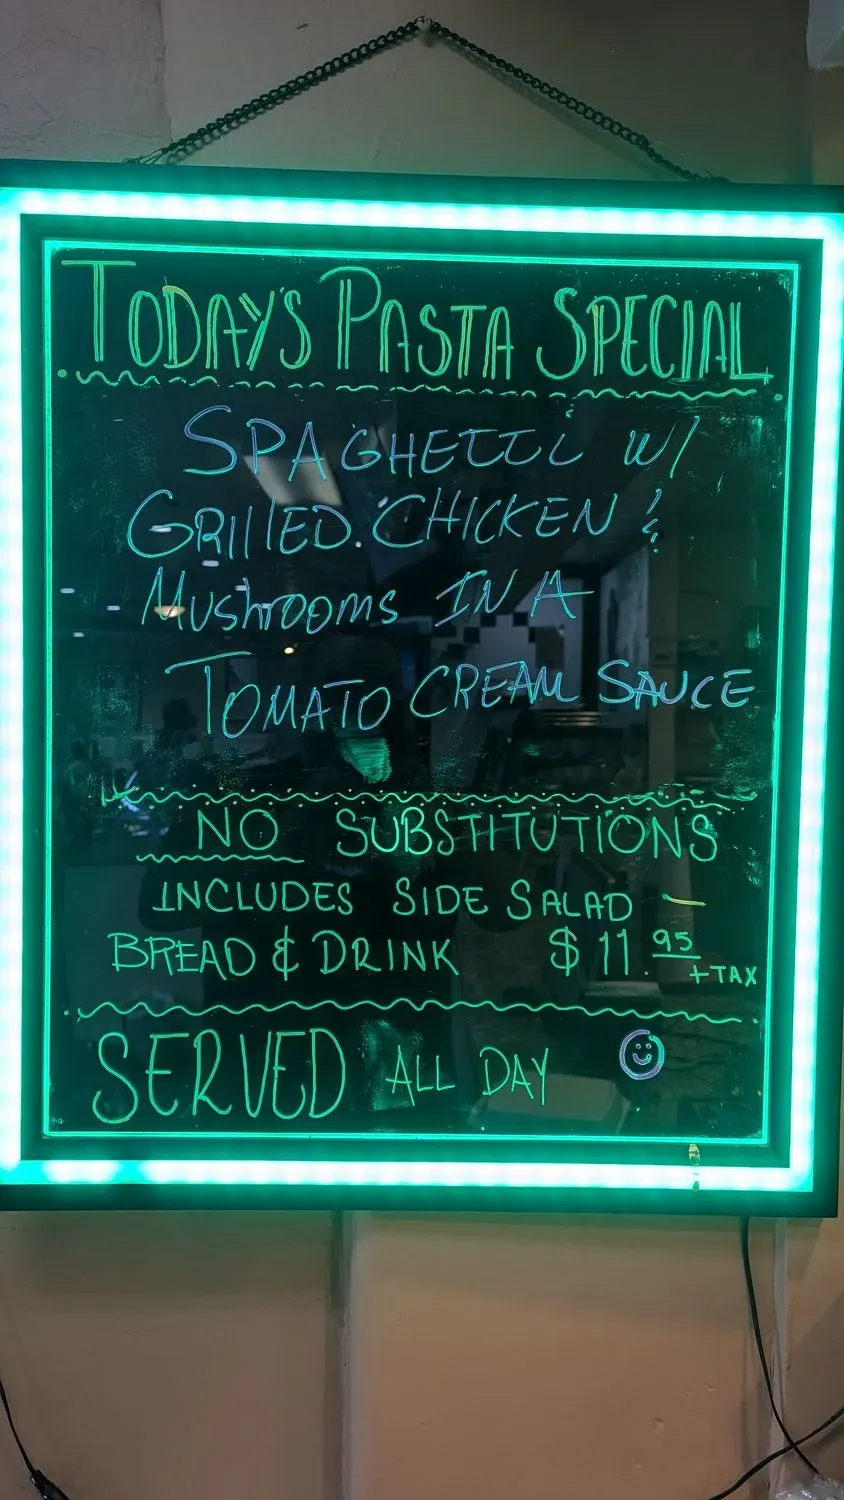 TODAY'S PASTA SPECIAL
SPAGHETTI W/
GRIllED CHICKEN &
MushrooMS IN A
TOMATO CREAM SAUCE
NO SUBSTITUTIONS
INCLUDES SIDE SALAD -
BREAD & DRINK $11.95 +TAX
SERVED ALL DAY